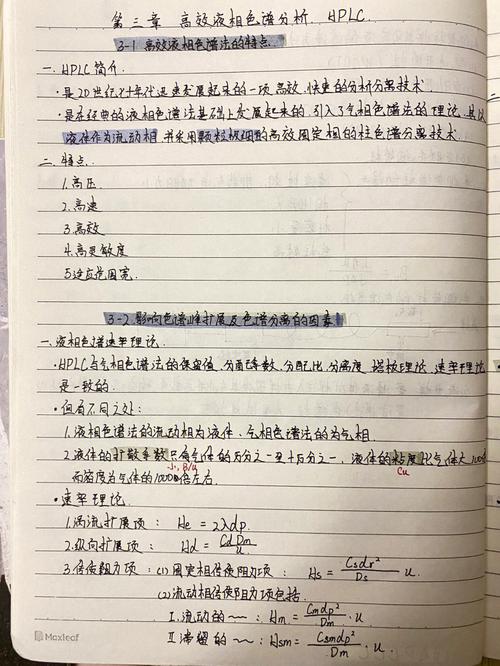 第三章 高效液相色谱分析. HPLC.
3-1 高效液相色谱法的特点.
一. HPLC 简介.
·是20世纪七十年代迅速发展起来的一项高效.快速的分析分离技术.
·是在经典的液相色谱法基础上发展起来的,引入了气相色谱法的理论,
液体作为流动相,并采用颗粒极细的高效固定相的柱色谱分离技术.
二. 特点.
1.高压.
2.高速
3.高效.
4.高灵敏度
5.适应范围宽.
3-2 影响色谱峰扩展及色谱分离的因素
一.液相色谱速率理论.
·HPLC与气相色谱法的保留值.分配系数.分配比.分离度.塔板理论.速率理论
是一致的.
·但有不同之处:
1.液相色谱法的流动相为液体.气相色谱法的为气相.
2.液体的扩散系数只有气体的万分之一至十万分之一.液体的粘度比气体大100倍
小, B/u
Cu
而密度为气体的1000倍左右.
·速率理论.
1.涡流扩展项: He = 2λdp.
2.纵向扩展项: Hd = CdDm/u
3.传质阻力项: (1)固定相传质阻力项: Hs = Csdf²/Ds u.
(2)流动相传质阻力项包括.
I.流动的~~: Hm = Cmdp²/Dm · u
II.滞留的~~: Hsm = Csmdp²/Dm · u
Maxleaf